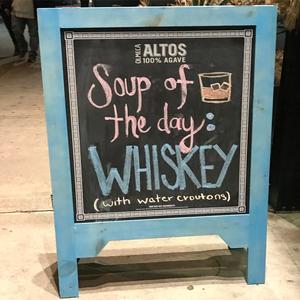 OLMECA
ALTOS
100% AGAVE
Soup of
the day:
WHISKEY
(with water croutons)